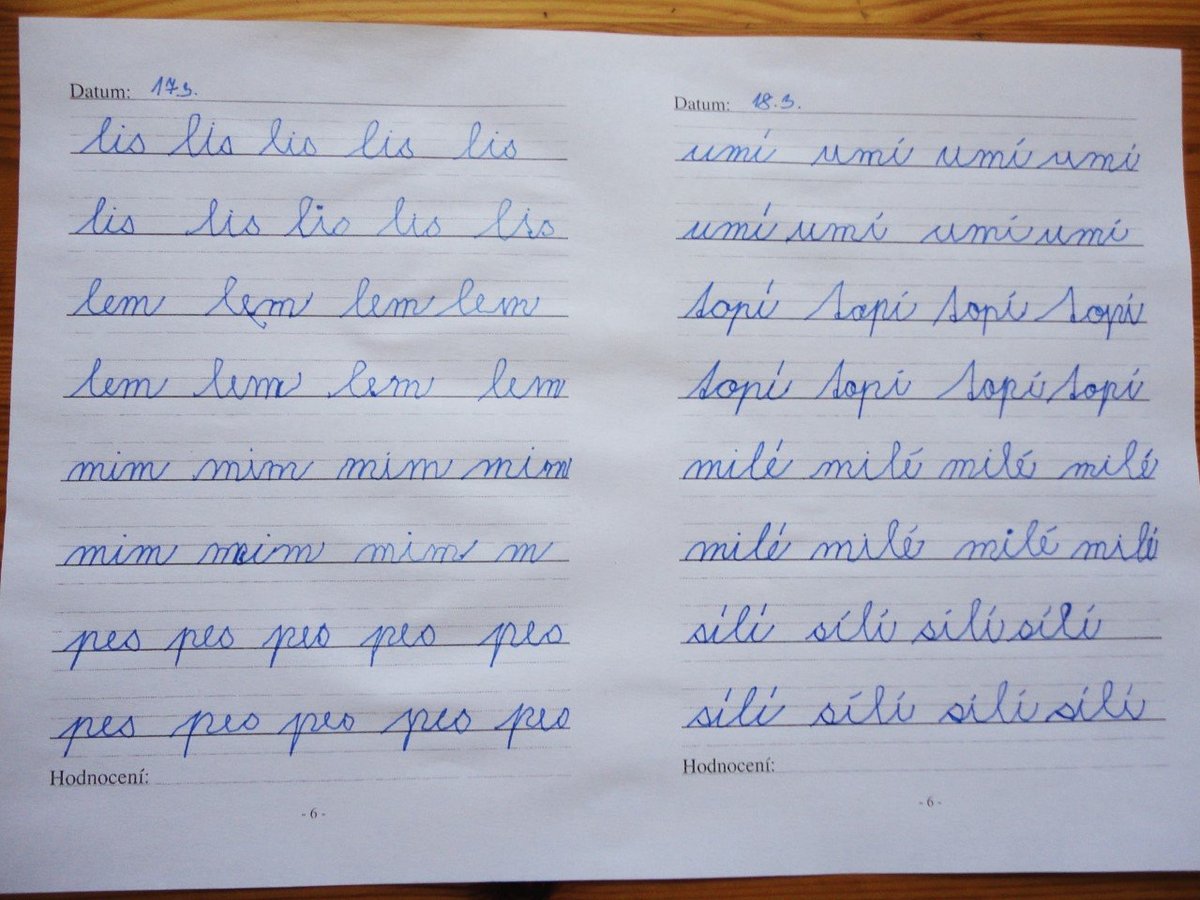 Datum: 17.3.
lis lis lis lis lis
lis lis lis lis lis
lem lem lem lem
lem lem lem lem
mim mim mim mim
mim mim mim m
pes pes pes pes pes
pes pes pes pes pes
Hodnocení:
- 6 -
Datum: 18.3.
umí umí umí umí
umí umí umí umí
topí topí topí topí
topí topí topí topí
milé milé milé milé
milé milé milé milé
sílí sílí sílí sílí
sílí sílí sílí sílí
Hodnocení:
- 6 -